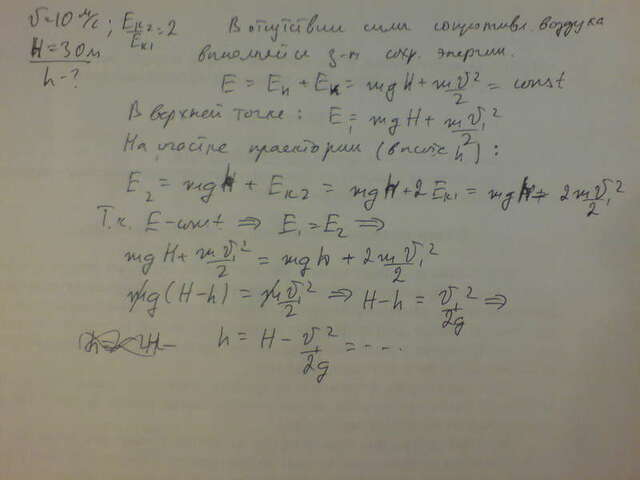 v=10 м/с; Eк2/Eк1=2 В отсутствии силы сопротивл. воздуха
H=30м выполняется з-н сохр. энергии.
h-?
E = Eп + Eк = mgH + mv²/2 = const
В верхней точке: E₁ = mgH + mv₁²/2
На участке траектории (высота h):
E₂ = mgh + Eк2 = mgh + 2Eк1 = mgh + 2mv₁²/2
Т.к. E-const ⇒ E₁=E₂ ⇒
mgH + mv₁²/2 = mgh + 2mv₁²/2
mg(H-h) = mv₁²/2 ⇒ H-h = v₁²/2g ⇒
h = H - v₁²/2g = ----